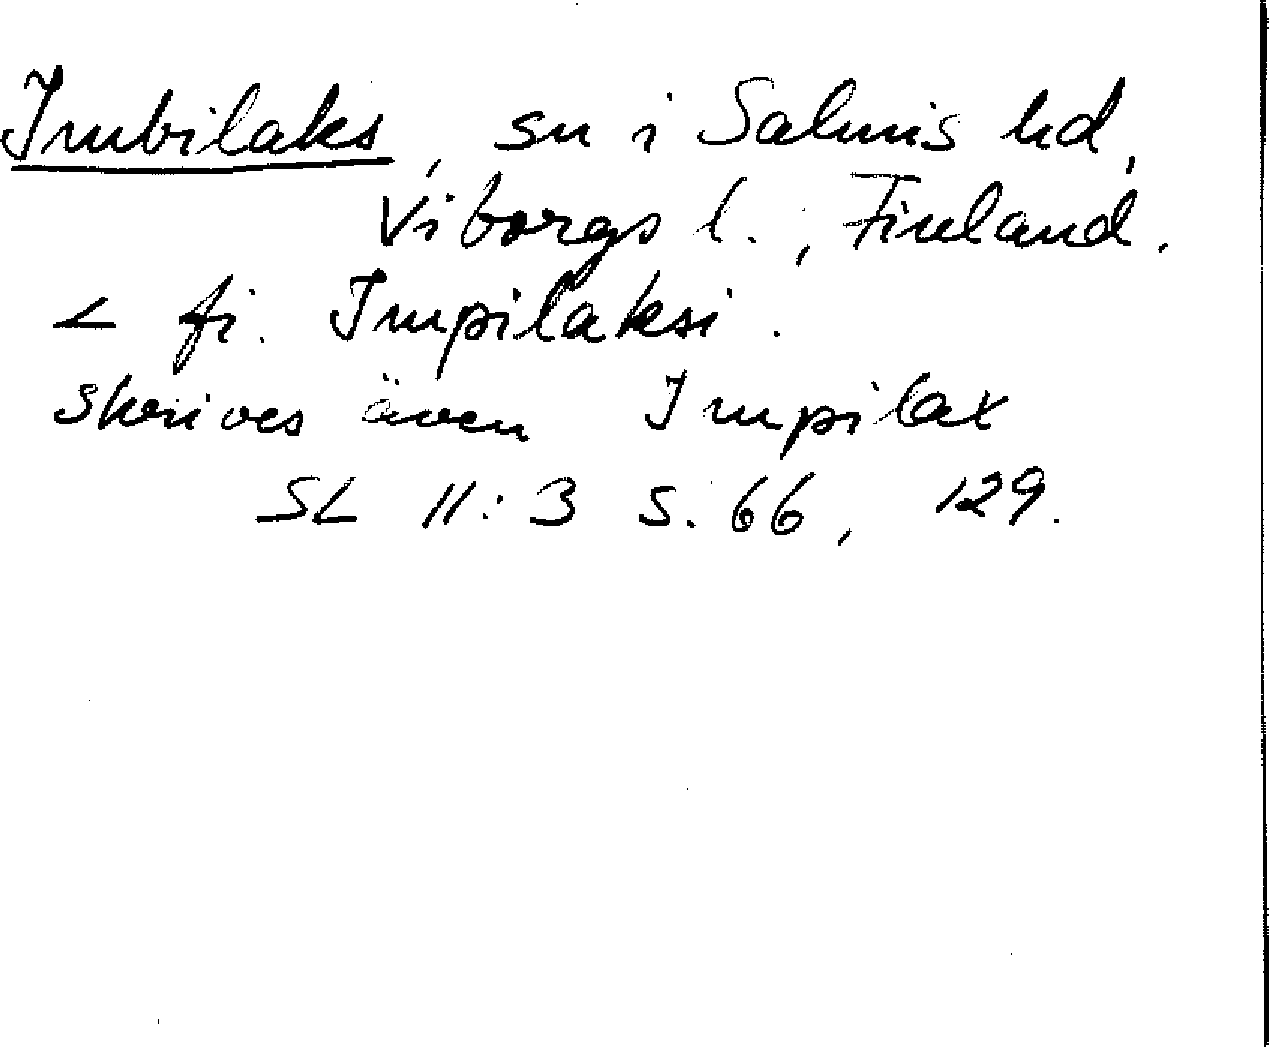 Imbilaks, sn i Salmis hd,
Viborgs l., Finland.
< fi. Impilaksi.
Skrives även Impilax
SL 11:3 s. 66, 129.